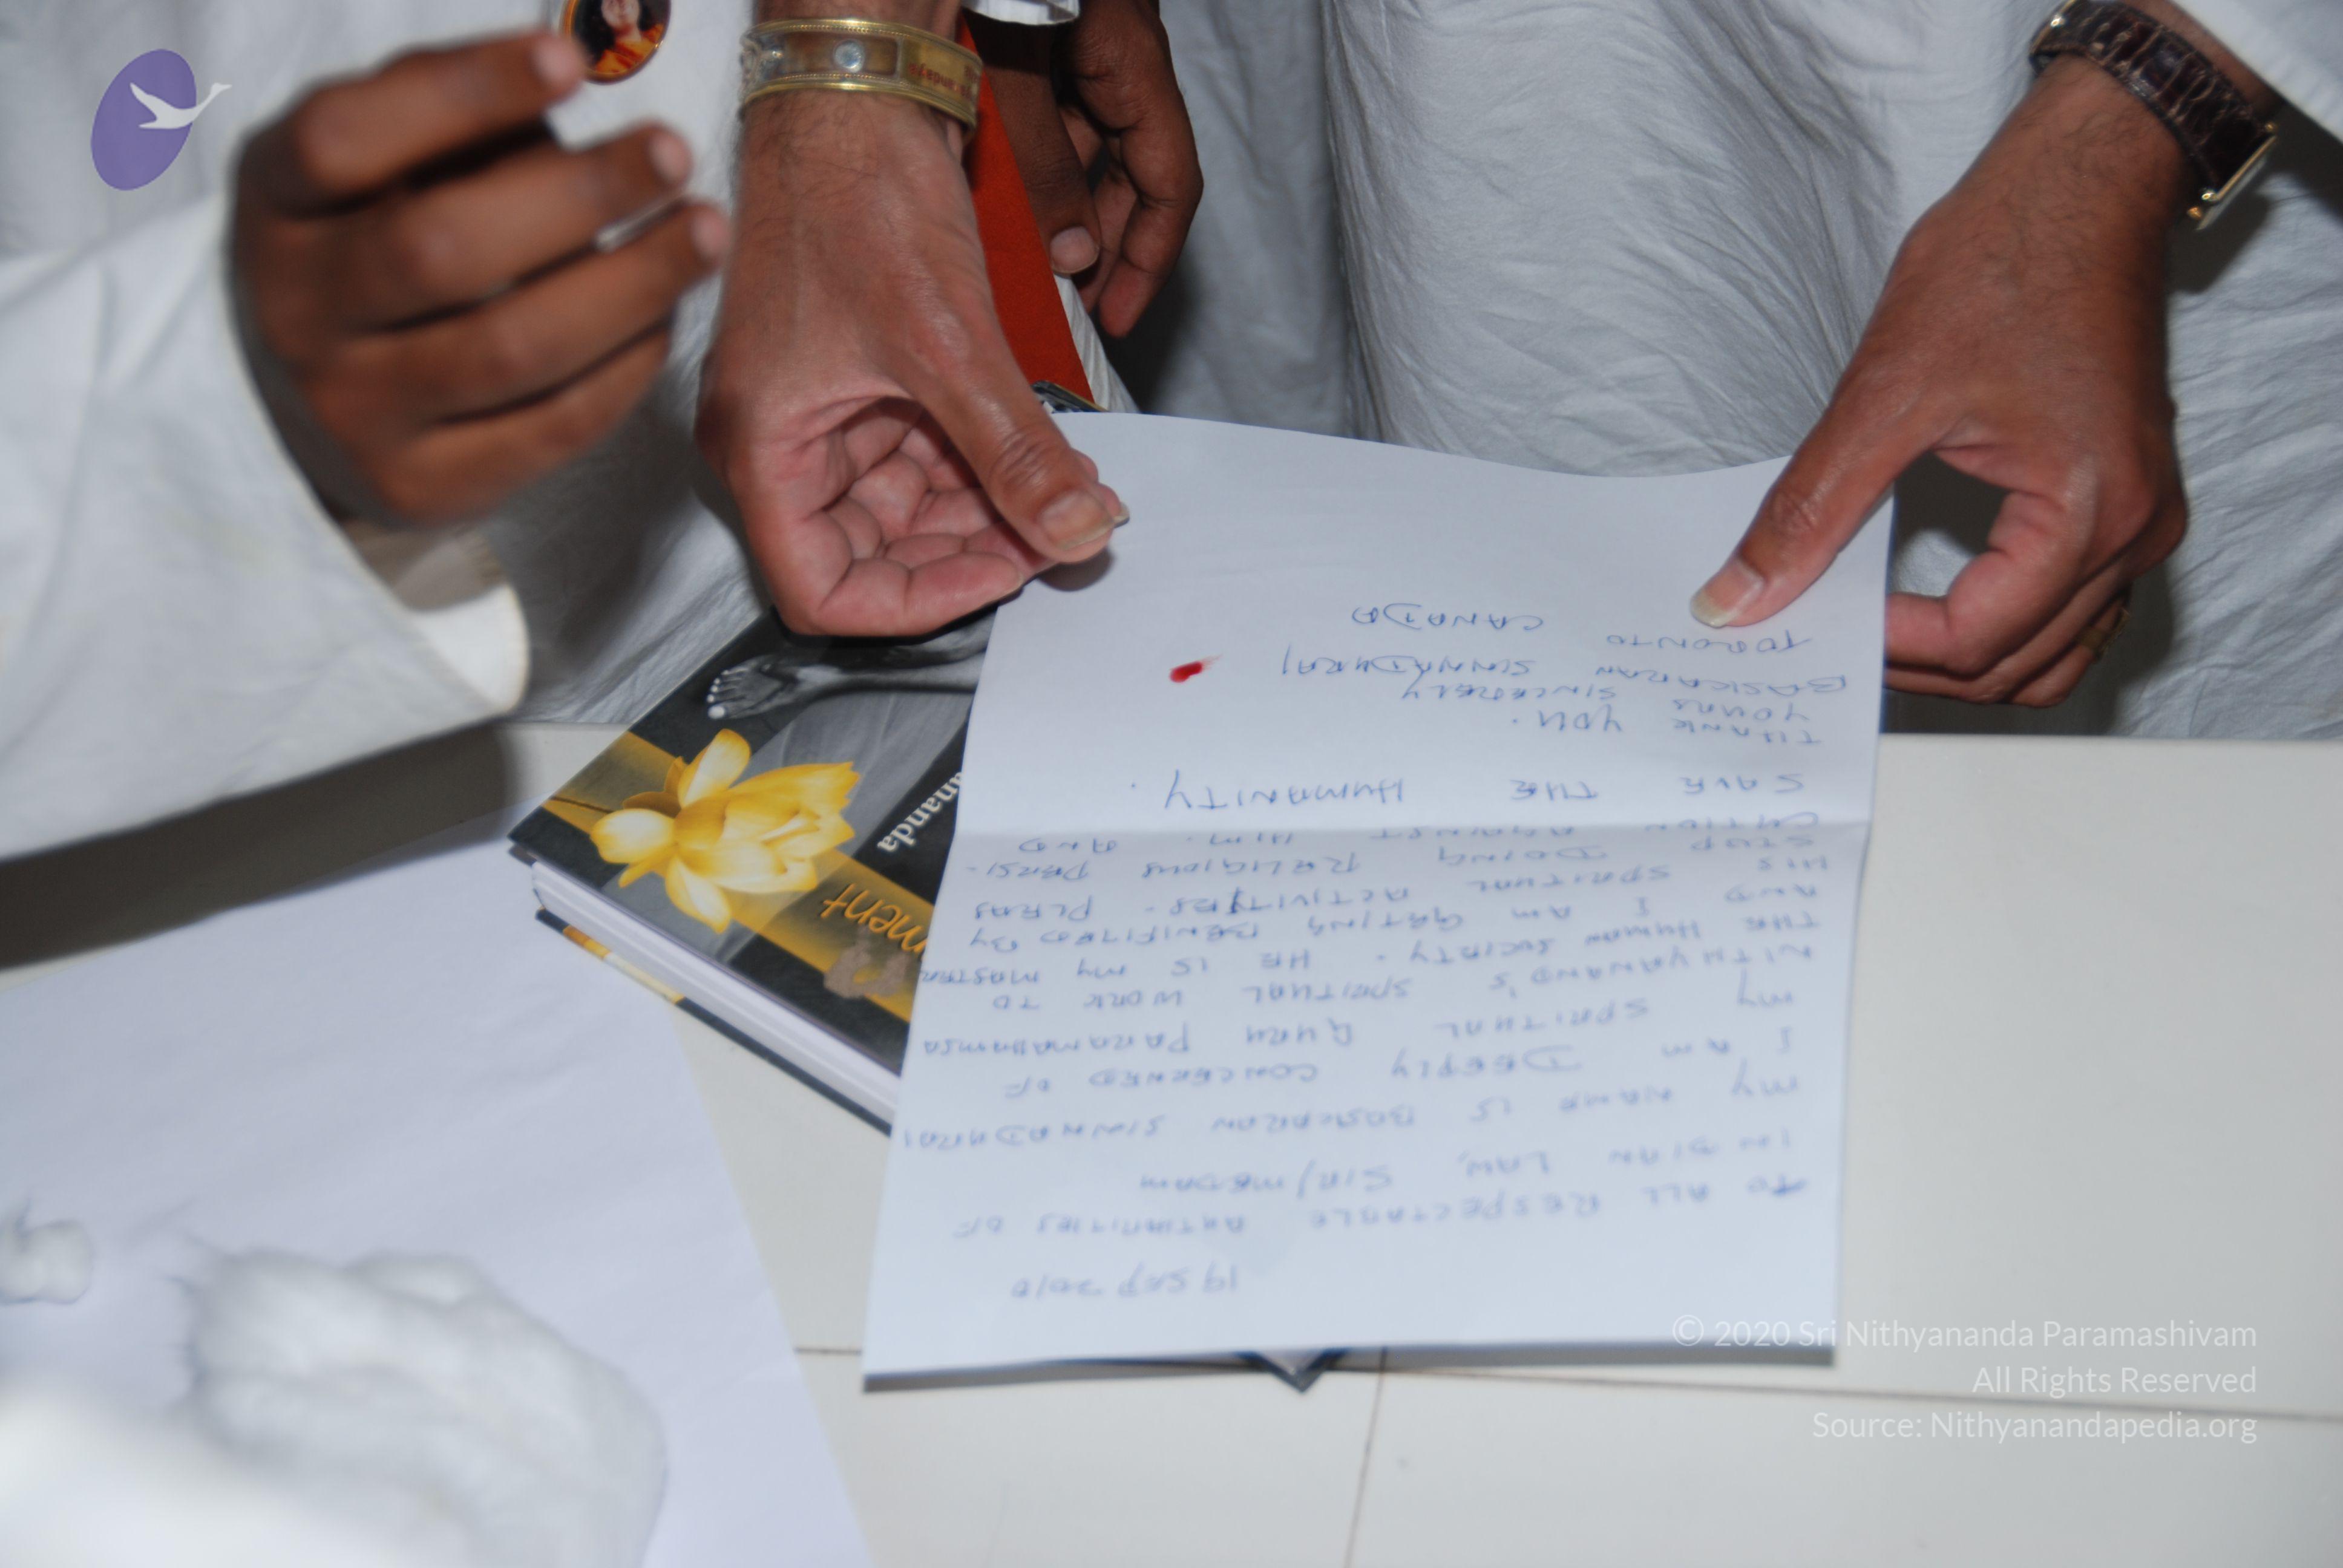 19 SEP 2010
TO ALL RESPECTABLE AUTHORITIES OF
INDIAN LAW, SIR/MEDAM
MY NAME IS BASKARAN SINNADURAI
I AM DEEPLY CONCERNED OF
MY SPRITUAL GURU PARAMAHAMSA
NITHYANAND'S SPRITUAL WORK TO
THE HUMAN SOCIETY. HE IS MY MASTER
AND I AM GETING BENIFITED BY
HIS SPRITUAL ACTIVITIES. PLEAS
STOP DOING RELIGIOUS PERSI-
CUTION AGAINST HIM. AND
SAVE THE HUMANITY.
THANK YOU.
YOURS SINCERELY
BASKARAN SINNADURAI
TORONTO CANADA
ment
ananda
© 2020 Sri Nithyananda Paramashivam
All Rights Reserved
Source: Nithyanandapedia.org